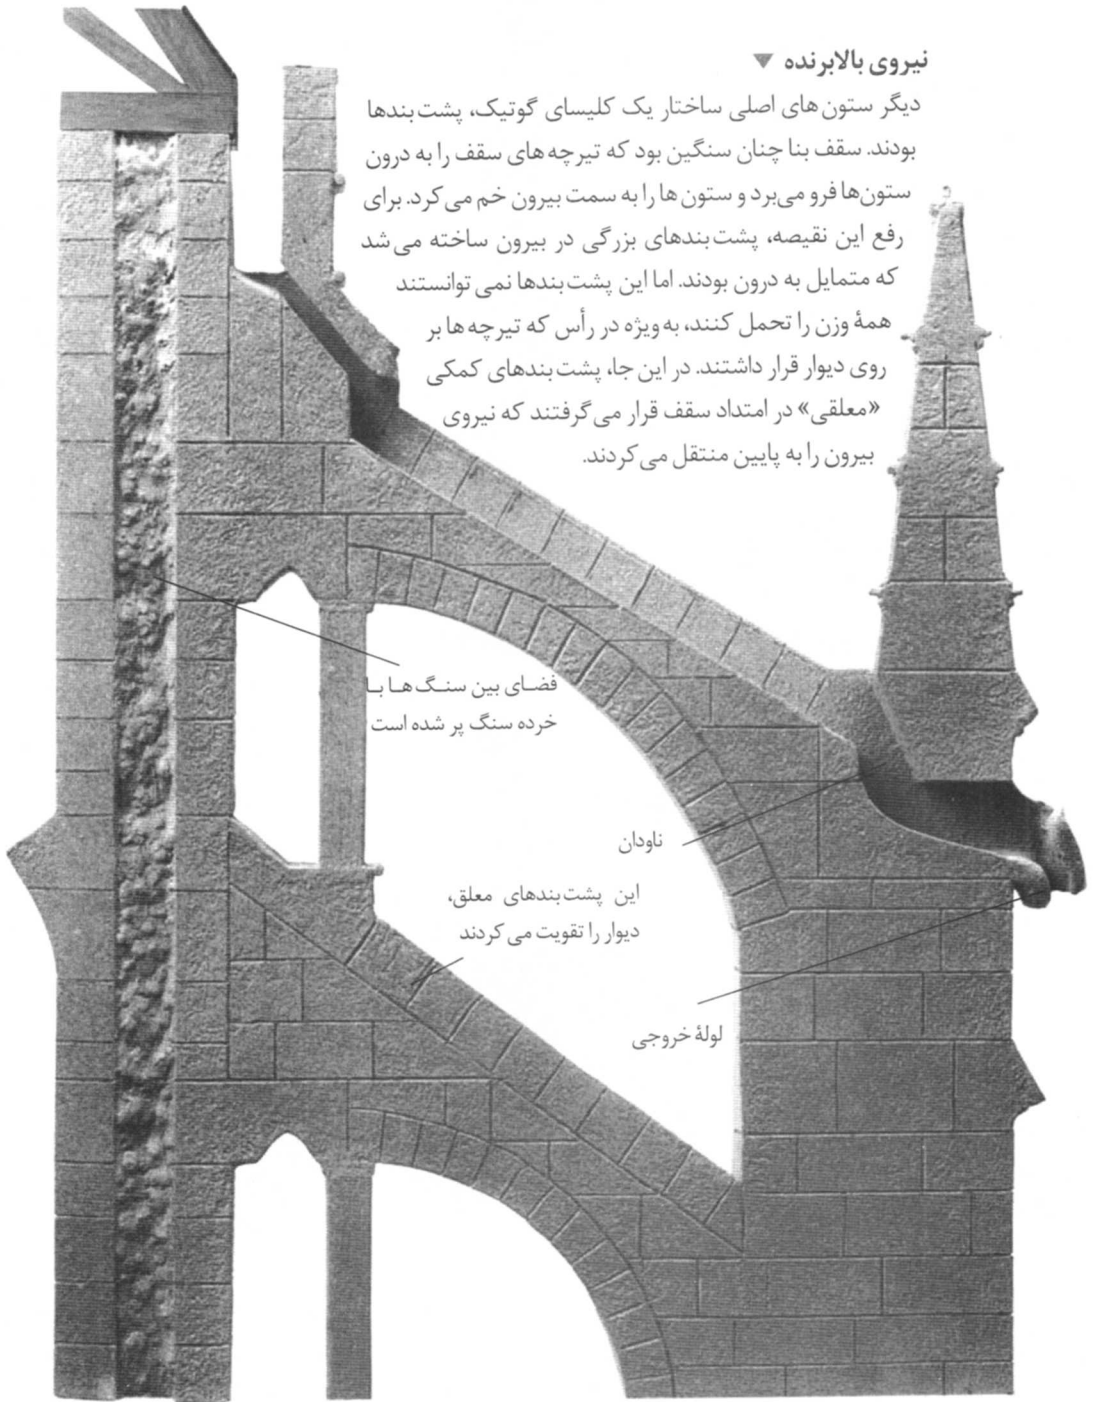 نیروی بالابرنده ▼
دیگر ستون‌های اصلی ساختار یک کلیسای گوتیک، پشت‌بندها
بودند. سقف بنا چنان سنگین بود که تیرچه‌های سقف را به درون
ستون‌ها فرو می‌برد و ستون‌ها را به سمت بیرون خم می‌کرد. برای
رفع این نقیصه، پشت‌بندهای بزرگی در بیرون ساخته می‌شد
که متمایل به درون بودند. اما این پشت‌بندها نمی‌توانستند
همهٔ وزن را تحمل کنند، به‌ویژه در رأس که تیرچه‌ها بر
روی دیوار قرار داشتند. در این جا، پشت‌بندهای کمکی
«معلقی» در امتداد سقف قرار می‌گرفتند که نیروی
بیرون را به پایین منتقل می‌کردند.
فضای بین سنگ‌ها با
خرده سنگ پر شده است
ناودان
این پشت‌بندهای معلق،
دیوار را تقویت می‌کردند
لولهٔ خروجی